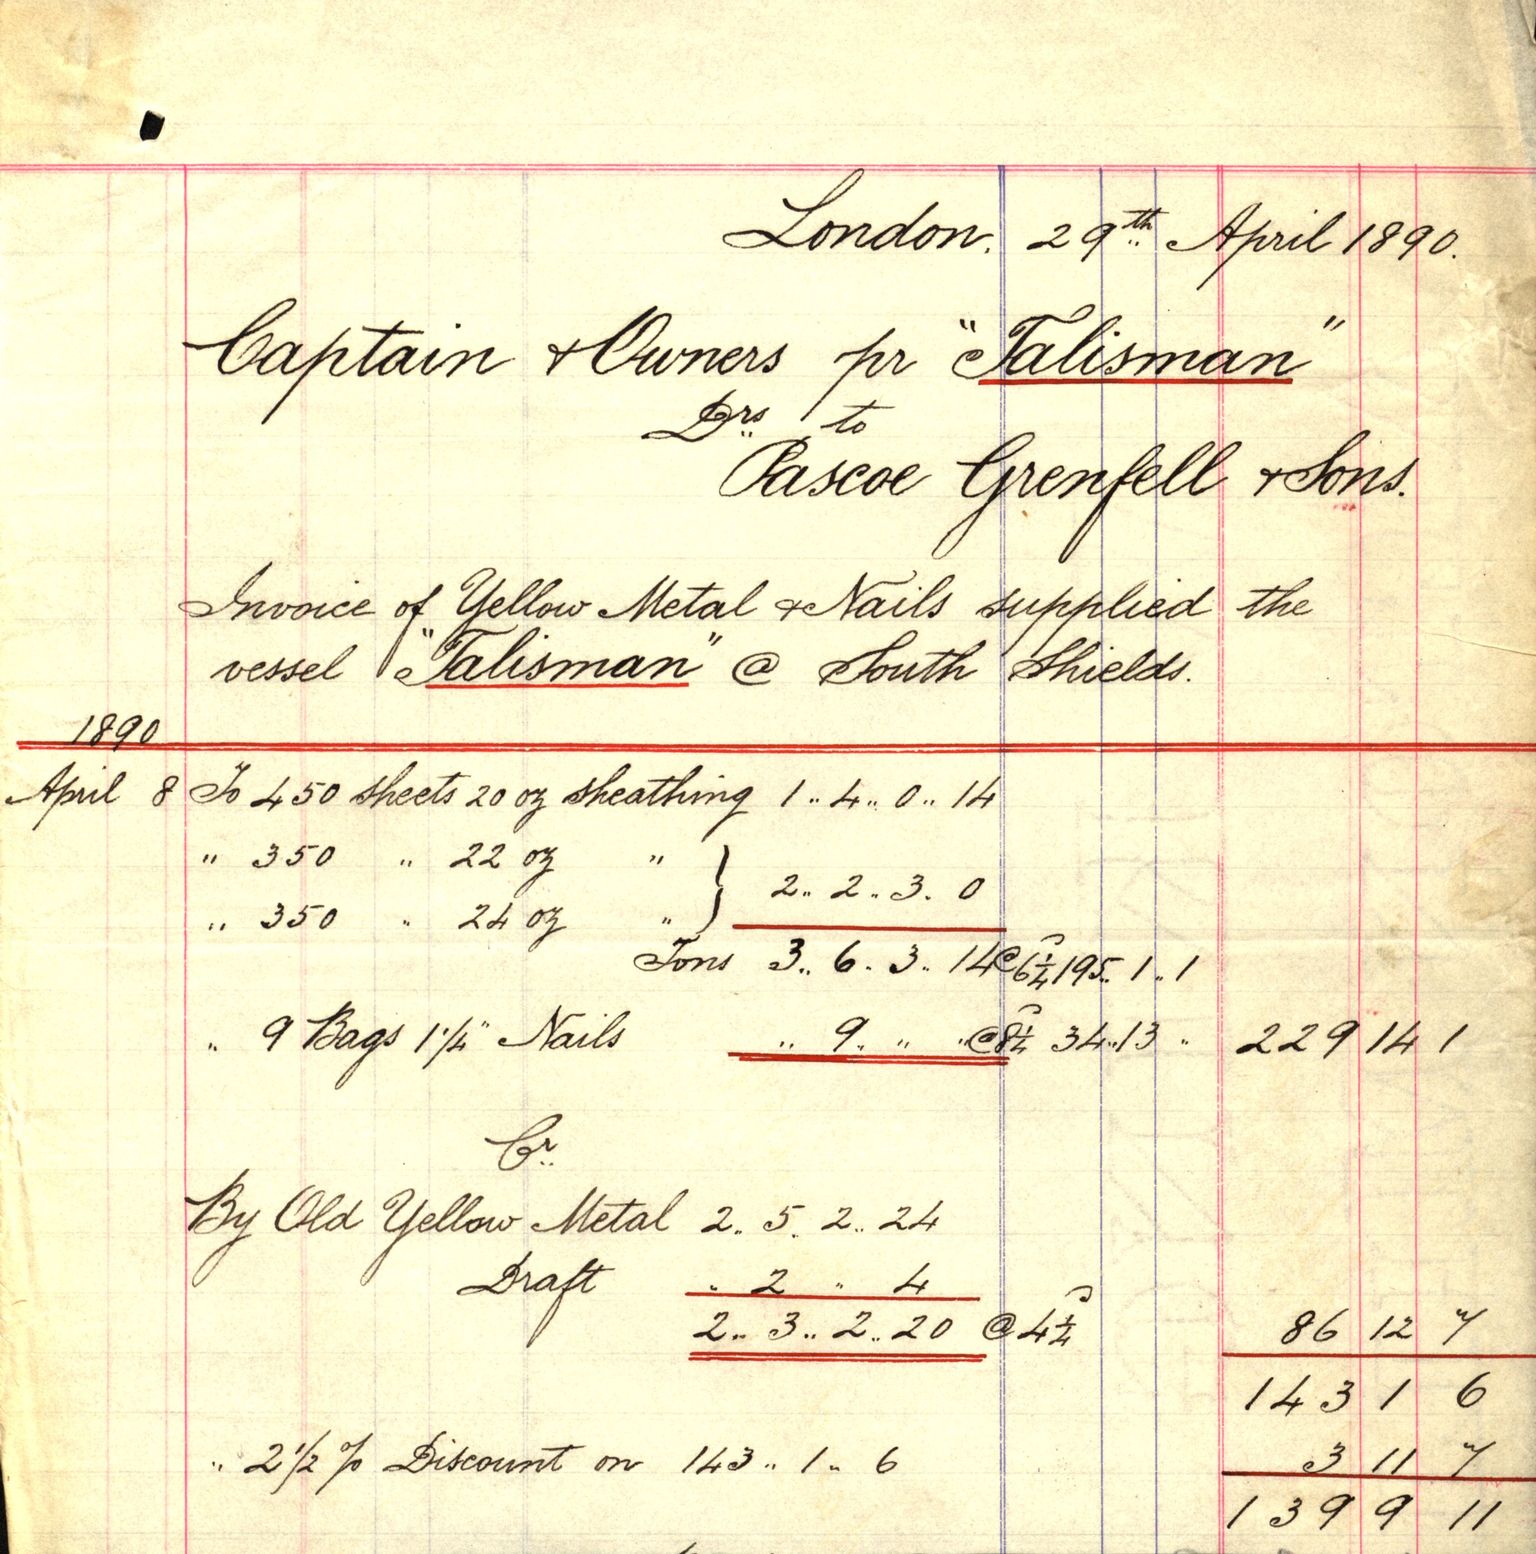 London. 29th April 1890.
Captain & Owners pr "Talisman"
Drs to
Pascoe Grenfell & Sons.
Invoice of Yellow Metal & Nails supplied the
vessel "Talisman" @ South Shields.
1890
April 8 To 450 sheets 20 oz sheathing 1 .. 4 .. 0 .. 14
" 350 " 22 oz "
2 .. 2 .. 3 . 0
" 350 " 24 oz "
Tons 3 .. 6 . 3 .. 14 @ 6¼ 195 .. 1 .. 1
" 9 Bags 1¼" Nails " 9 . " " @ 8¼ 34 .. 13 " 229 14 1
Cr
By Old Yellow Metal 2 .. 5 . 2 .. 24
Draft " 2 " 4
2 .. 3 .. 2 .. 20 @ 4¼ 86 12 7
143 1 6
" 2 1/2 % Discount on 143 .. 1 .. 6 3 11 7
139 9 11